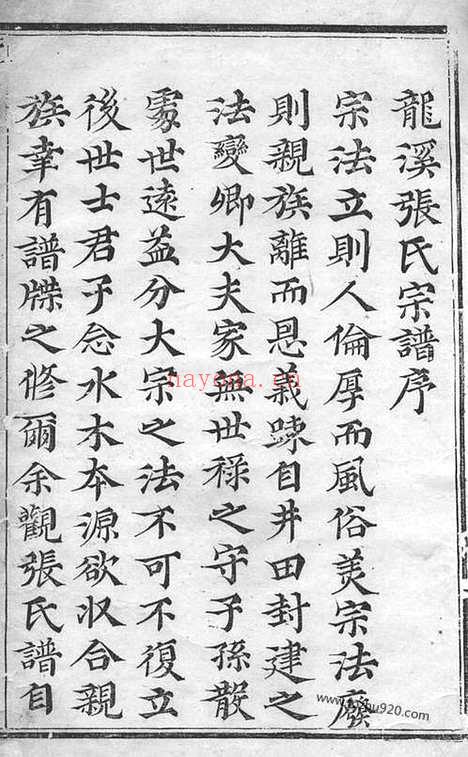 龍溪張氏宗譜序
宗法立則人倫厚而風俗美宗法廢
則親族離而恩義踈自井田封建之
法變卿大夫家無世祿之守子孫散
處世遠益分大宗之法不可不復立
後世士君子念水木本源欲收合親
族幸有譜牒之修爾余觀張氏譜自
nayona.cn